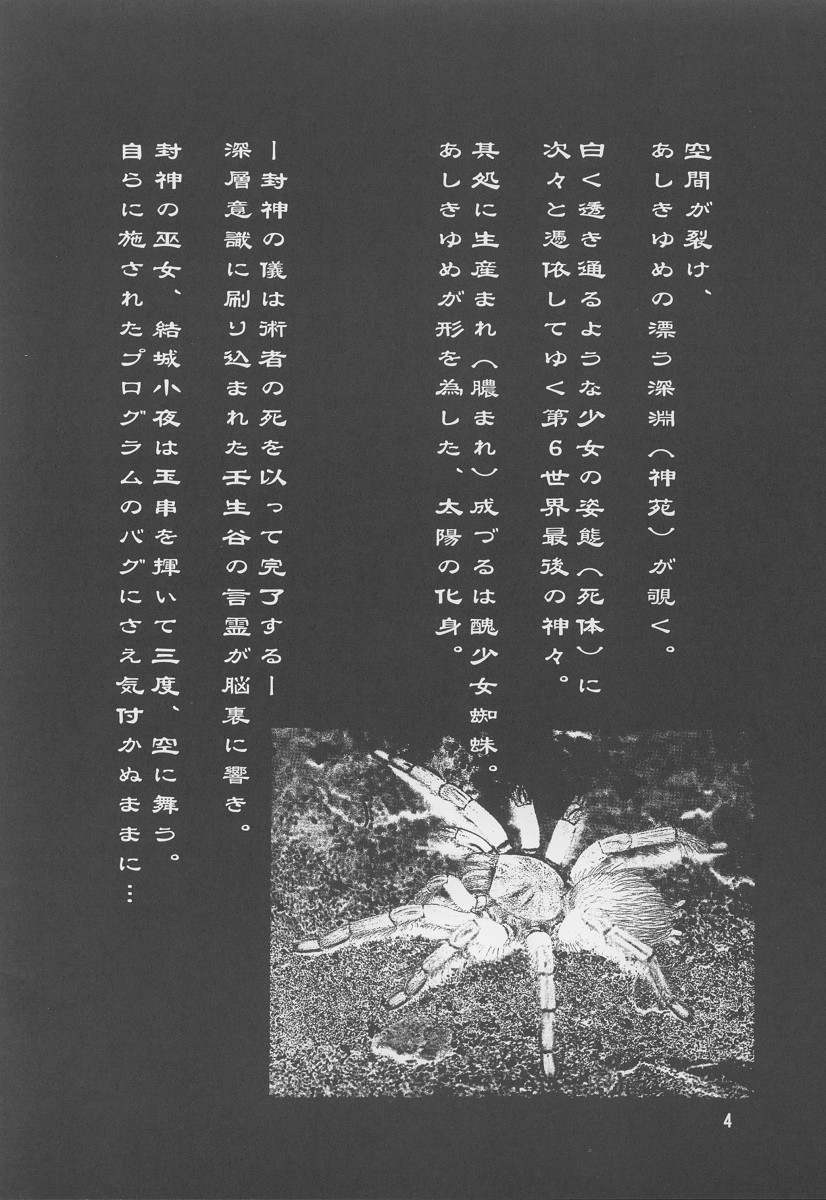 空間が裂け、
あしきゆめの漂う深淵（神苑）が覗く。
白く透き通るような少女の姿態（死体）に
次々と憑依してゆく第６世界最後の神々。
其処に生産まれ（膿まれ）成づるは醜少女蜘蛛。
あしきゆめが形を為した、太陽の化身。
ー封神の儀は術者の死を以って完了するー
深層意識に刷り込まれた壬生谷の言霊が脳裏に響き。
封神の巫女、結城小夜は玉串を揮いて三度、空に舞う。
自らに施されたプログラムのバグにさえ気付かぬままに…
4